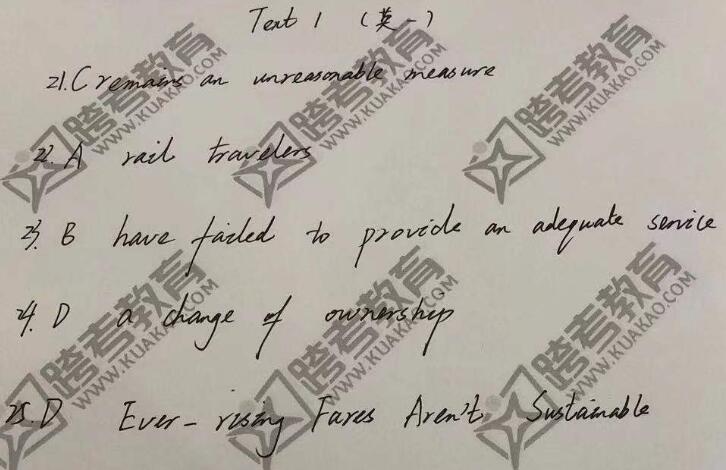 Text 1 (英一)
21. C remains an unreasonable measure
22. A rail travelers
23. B have failed to provide an adequate service
24. D a change of ownership
25. D Ever-rising Fares Aren't Sustainable
跨考教育
WWW.KUAKAO.COM
跨考教育
WWW.KUAKAO.COM
跨考教育
WWW.KUAKAO.COM
跨考教育
WWW.KUAKAO.COM
跨考教育
WWW.KUAKAO.COM
跨考教育
WWW.KUAKAO.COM